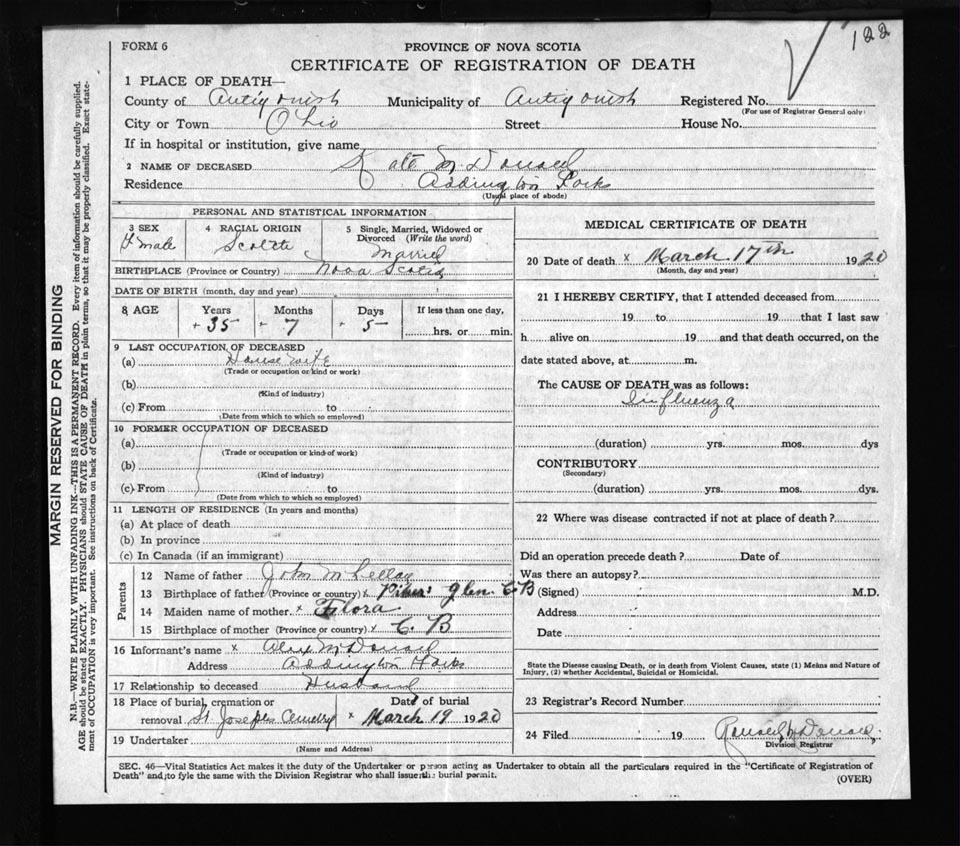 122
FORM 6
PROVINCE OF NOVA SCOTIA
CERTIFICATE OF REGISTRATION OF DEATH
1 PLACE OF DEATH—
County of Antigonish Municipality of Antigonish Registered No.
(For use of Registrar General only)
City or Town Ohio Street House No.
If in hospital or institution, give name
2 NAME OF DECEASED Kate McDonald
Residence Addington Forks
(Usual place of abode)
PERSONAL AND STATISTICAL INFORMATION
3 SEX 4 RACIAL ORIGIN 5 Single, Married, Widowed or
Divorced (Write the word)
Female Scotch Married
BIRTHPLACE (Province or Country) Nova Scotia
DATE OF BIRTH (month, day and year)
8 AGE Years Months Days If less than one day,
35 7 5 hrs. or min.
9 LAST OCCUPATION OF DECEASED
(a) House wife
(Trade or occupation or kind or work)
(b)
(Kind of industry)
(c) From to
(Date from which to which so employed)
10 FORMER OCCUPATION OF DECEASED
(a)
(Trade or occupation or kind of work)
(b)
(Kind of industry)
(c) From to
(Date from which to which so employed)
11 LENGTH OF RESIDENCE (In years and months)
(a) At place of death
(b) In province
(c) In Canada (if an immigrant)
Parents
12 Name of father John McLellan
13 Birthplace of father (Province or country) x Glen C B
14 Maiden name of mother x Flora
15 Birthplace of mother (Province or country) x C. B
16 Informant's name x Alex McDonald
Address Addington Forks
17 Relationship to deceased Husband
18 Place of burial, cremation or Date of burial
removal St Josephs Cemetry x March 19 1920
19 Undertaker
(Name and Address)
MEDICAL CERTIFICATE OF DEATH
20 Date of death x March 17th 1920
(Month, day and year)
21 I HEREBY CERTIFY, that I attended deceased from
19 to 19 that I last saw
h alive on 19 and that death occurred, on the
date stated above, at m.
The CAUSE OF DEATH was as follows:
Influenza
(duration) yrs. mos. dys
CONTRIBUTORY
(Secondary)
(duration) yrs. mos. dys.
22 Where was disease contracted if not at place of death?
Did an operation precede death? Date of
Was there an autopsy?
(Signed) M.D.
Address
Date
State the Disease causing Death, or in death from Violent Causes, state (1) Means and Nature of
Injury, (2) whether Accidental, Suicidal or Homicidal.
23 Registrar's Record Number
24 Filed 19 Ronald McDonald
Division Registrar
SEC. 46—Vital Statistics Act makes it the duty of the Undertaker or person acting as Undertaker to obtain all the particulars required in the "Certificate of Registration of
Death" and to fyle the same with the Division Registrar who shall issue the burial permit.
(OVER)
MARGIN RESERVED FOR BINDING
N.B.—WRITE PLAINLY WITH UNFADING INK—THIS IS A PERMANENT RECORD. Every item of information should be carefully supplied.
AGE should be stated EXACTLY. PHYSICIANS should STATE CAUSE OF DEATH in plain terms, so that it may be properly classified. Exact state-
ment of OCCUPATION is very important. See instructions on back of Certificate.